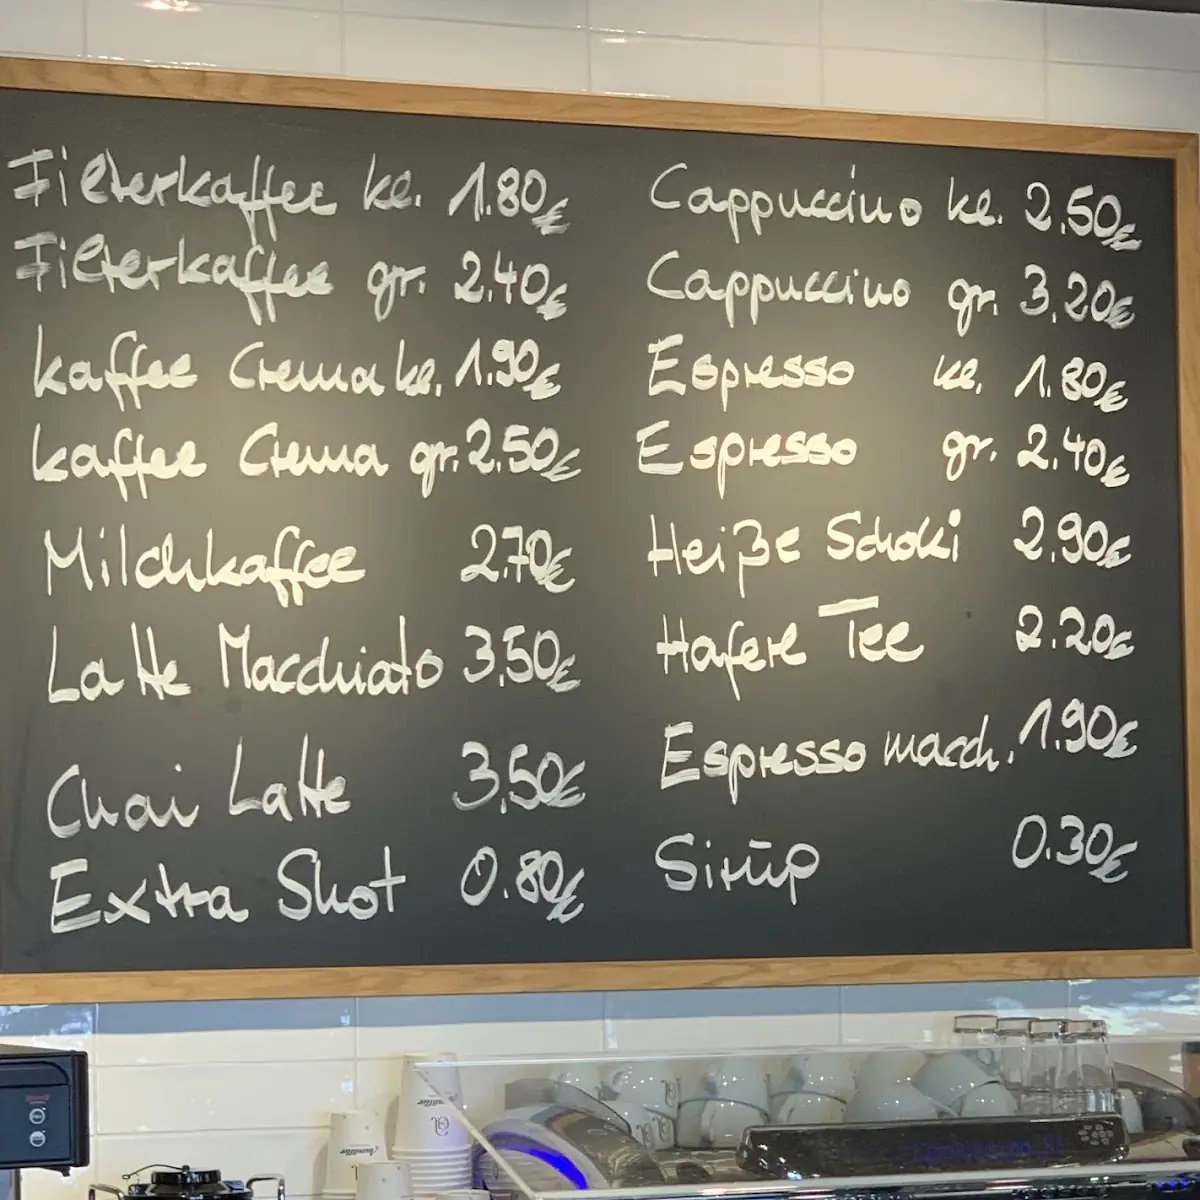 Filterkaffee kl. 1.80€
Filterkaffee gr. 2.40€
kaffee Crema kl. 1.90€
kaffee Crema gr. 2.50€
Milchkaffee 2.70€
Latte Macchiato 3.50€
Chai Latte 3.50€
Extra Shot 0.80€
Cappuccino kl. 2.50€
Cappuccino gr. 3.20€
Espresso kl. 1.80€
Espresso gr. 2.40€
Heiße Schoki 2.90€
Hafere Tee 2.20€
Espresso macch. 1.90€
Sirūp 0.30€